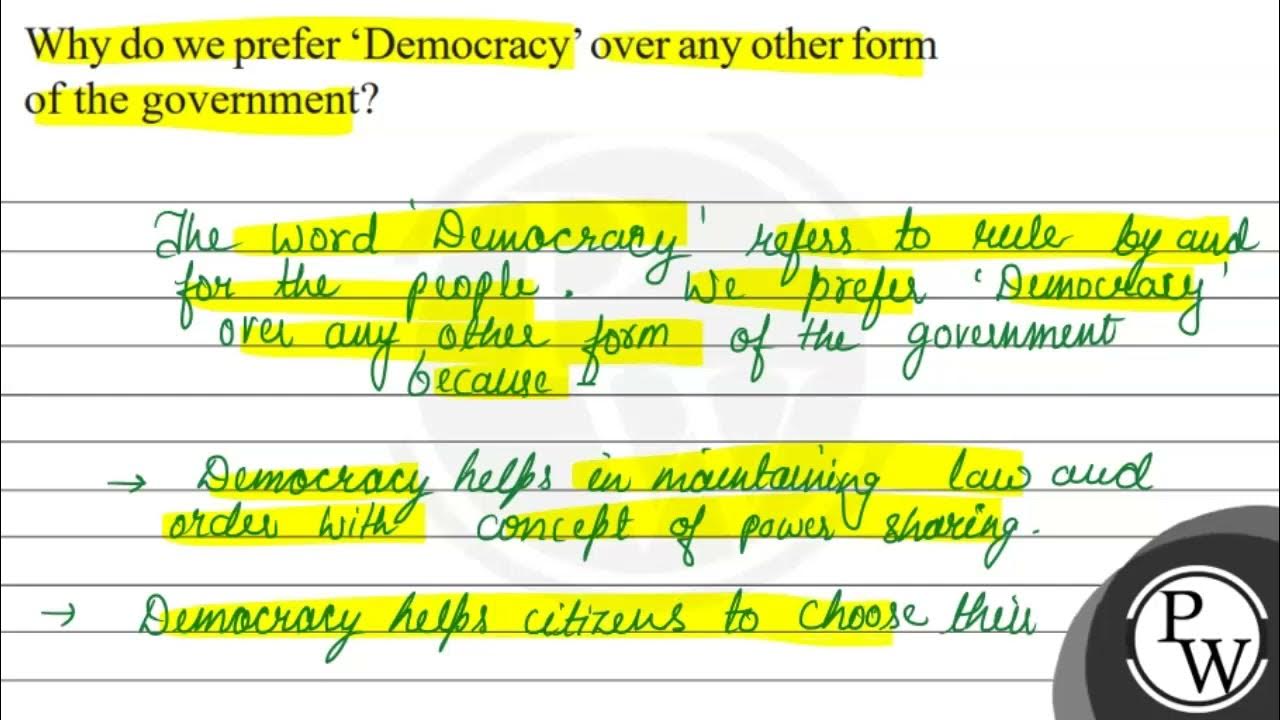 Why do we prefer ‘Democracy’ over any other form
of the government?
The word 'Democracy' refers to rule by and
for the people. We prefer 'Democracy'
over any other form of the government
because :-
→ Democracy helps in maintaining law and
order with concept of power sharing.
→ Democracy helps citizens to choose their
P
W